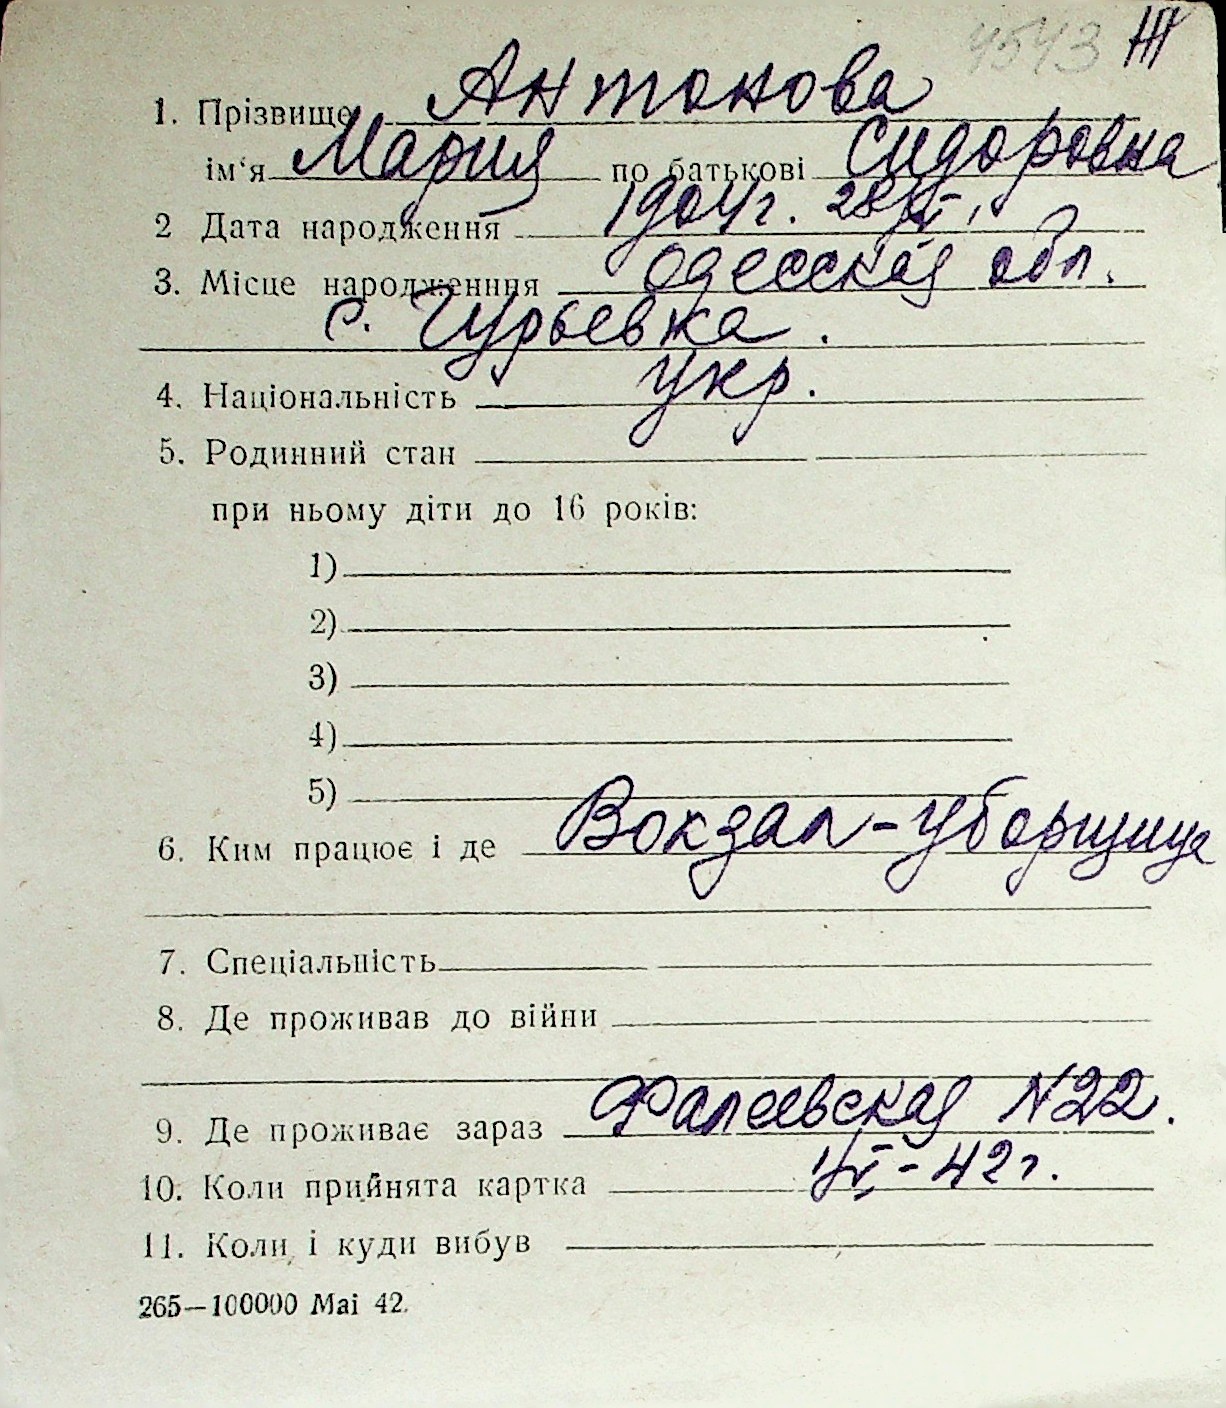 4543 Ж
1. Прізвище Антонова
ім‘я Мария по батькові Сидоровна
2 Дата народження 1904г. 28/
3. Місце народженння Одесская обл.
с. Гурьевка.
4. Національність укр.
5. Родинний стан
при ньому діти до 16 років:
1)
2)
3)
4)
5)
6. Ким працює і де Вокзал-уборщица
7. Спеціальність
8. Де проживав до війни
9. Де проживає зараз Фалеевская N22.
10. Коли прийнята картка -42г.
11. Коли і куди вибув
265—100000 Маі 42.